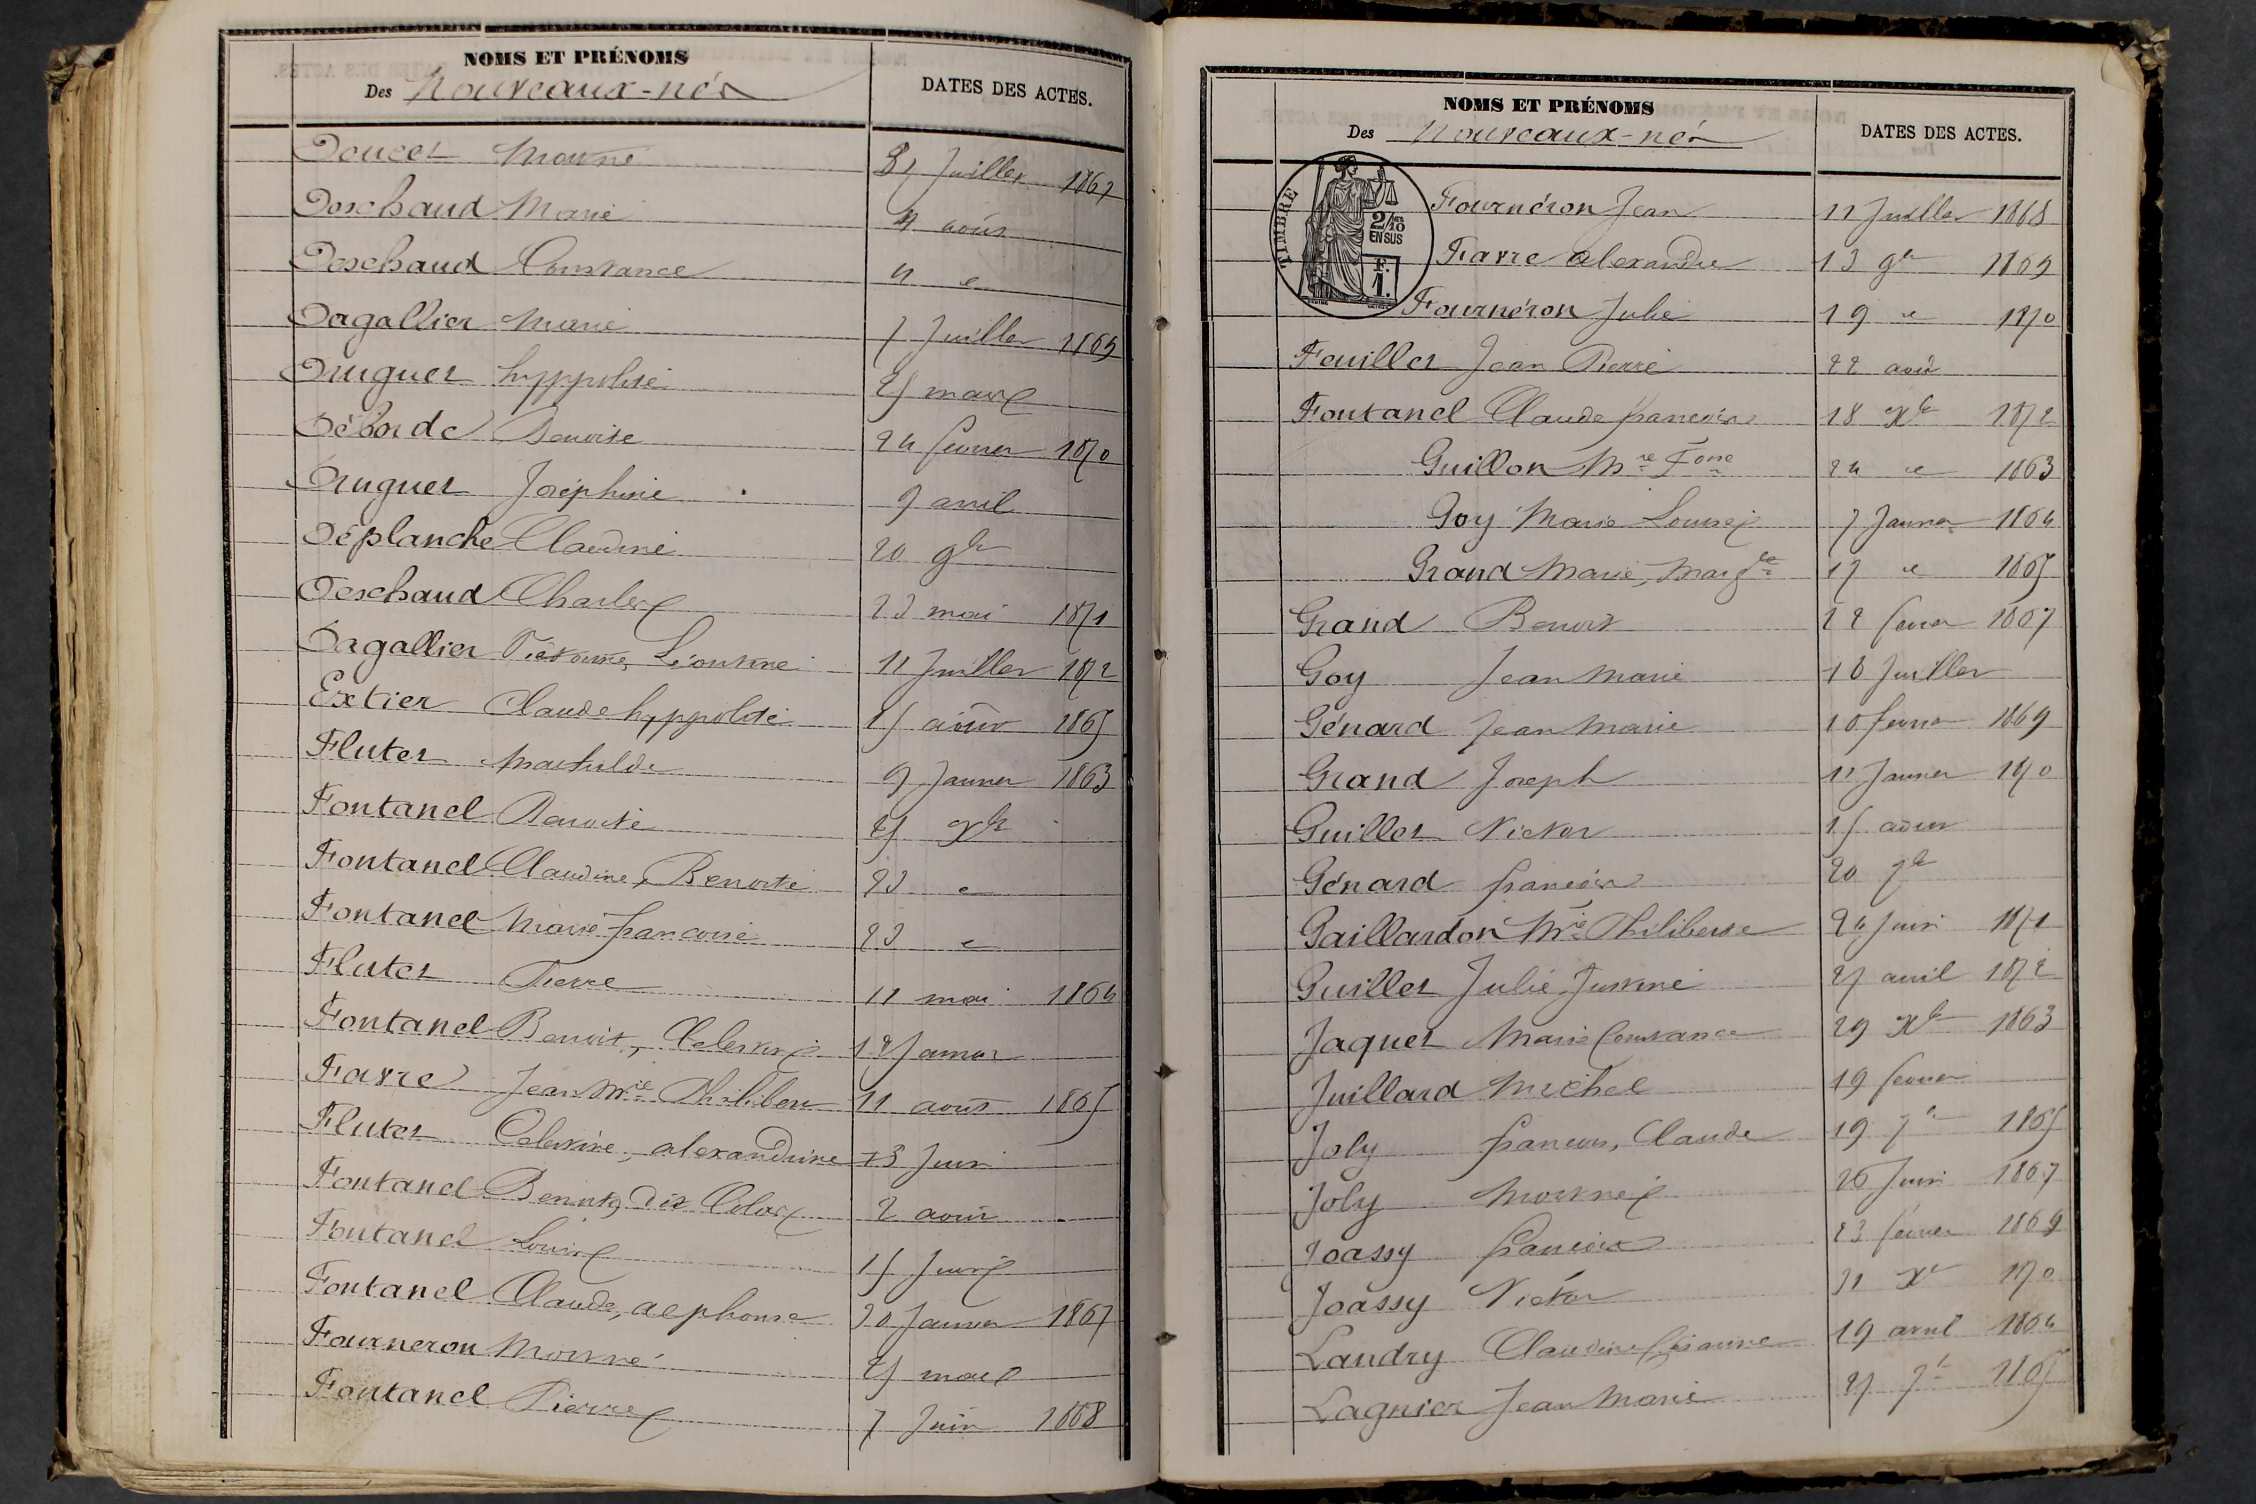 NOMS ET PRÉNOMS
Des Nouveaux-nés
DATES DES ACTES.
Doucet Mort né 31 Juillet 1867
Deschaud Marie 4 août
Deschaud Constance 4 d
Dagallier Marie 7 Juillet 1869
Druguet hyppolite 25 mars
Déborde Benoite 24 fevrier 1870
Druguet Joséphine 9 avril
Déplanche Claudine 20 9bre
Deschaud Charles 23 mai 1871
Dagallier Victorine, Léontine 11 Juillet 1872
Extier Claude hyppolite 15 août 1865
Flutet Mathilde 9 Janvier 1863
Fontanel Benoite 25 Xbre
Fontanel Claudine, Benoite 23 d
Fontanel Marie francoise 23 d
Flutet Pierre 11 mai 1864
Fontanel Benoit, Celestin 12 Janvier
Favre Jean Mie Philibert 11 août 1865
Flutet Celestine, alexandrine 13 Juin
Fontanel Benoit, dit 2 août
Fontanel Louis 15 Juin
Fontanel Claude, alphonse 30 Janvier 1867
Fourneron Mort né 25 mai
Fontanel Pierre 7 Juin 1868
NOMS ET PRÉNOMS
Des Nouveaux-nés
DATES DES ACTES.
TIMBRE
2/10 EN SUS
F. 1.
Fournéron Jean 11 Juillet 1868
Favre alexandre 13 9bre 1869
Fournéron Julie 19 d 1870
Feuillet Jean Pierre 22 août
Fontanel Claude francois 18 Xbre 1872
Guillon Mie Fcoise 24 d 1863
Goy Marie Louise 7 Janvier 1864
Grand Marie, Margte 17 d 1865
Grand Benoit 22 fevrier 1867
Goy Jean Marie 18 Juillet
Génard Jean Marie 10 fevrier 1869
Grand Joseph 11 Janvier 1870
Guillet Victor 15 août
Génard francois 20 7bre
Gaillardon Mie Philiberte 24 Juin 1871
Guillet Julie, Justine 27 avril 1872
Jaquet Marie Constance 29 Xbre 1863
Juillard Michel 19 fevrier
Joly francois, Claude 19 7bre 1865
Joly Mort né 26 Juin 1867
Joassy francois 23 fevrier 1869
Joassy Victor 31 Xbre 1870
Landry Claudine 19 avril 1864
Lagnier Jean Marie 27 7bre 1865